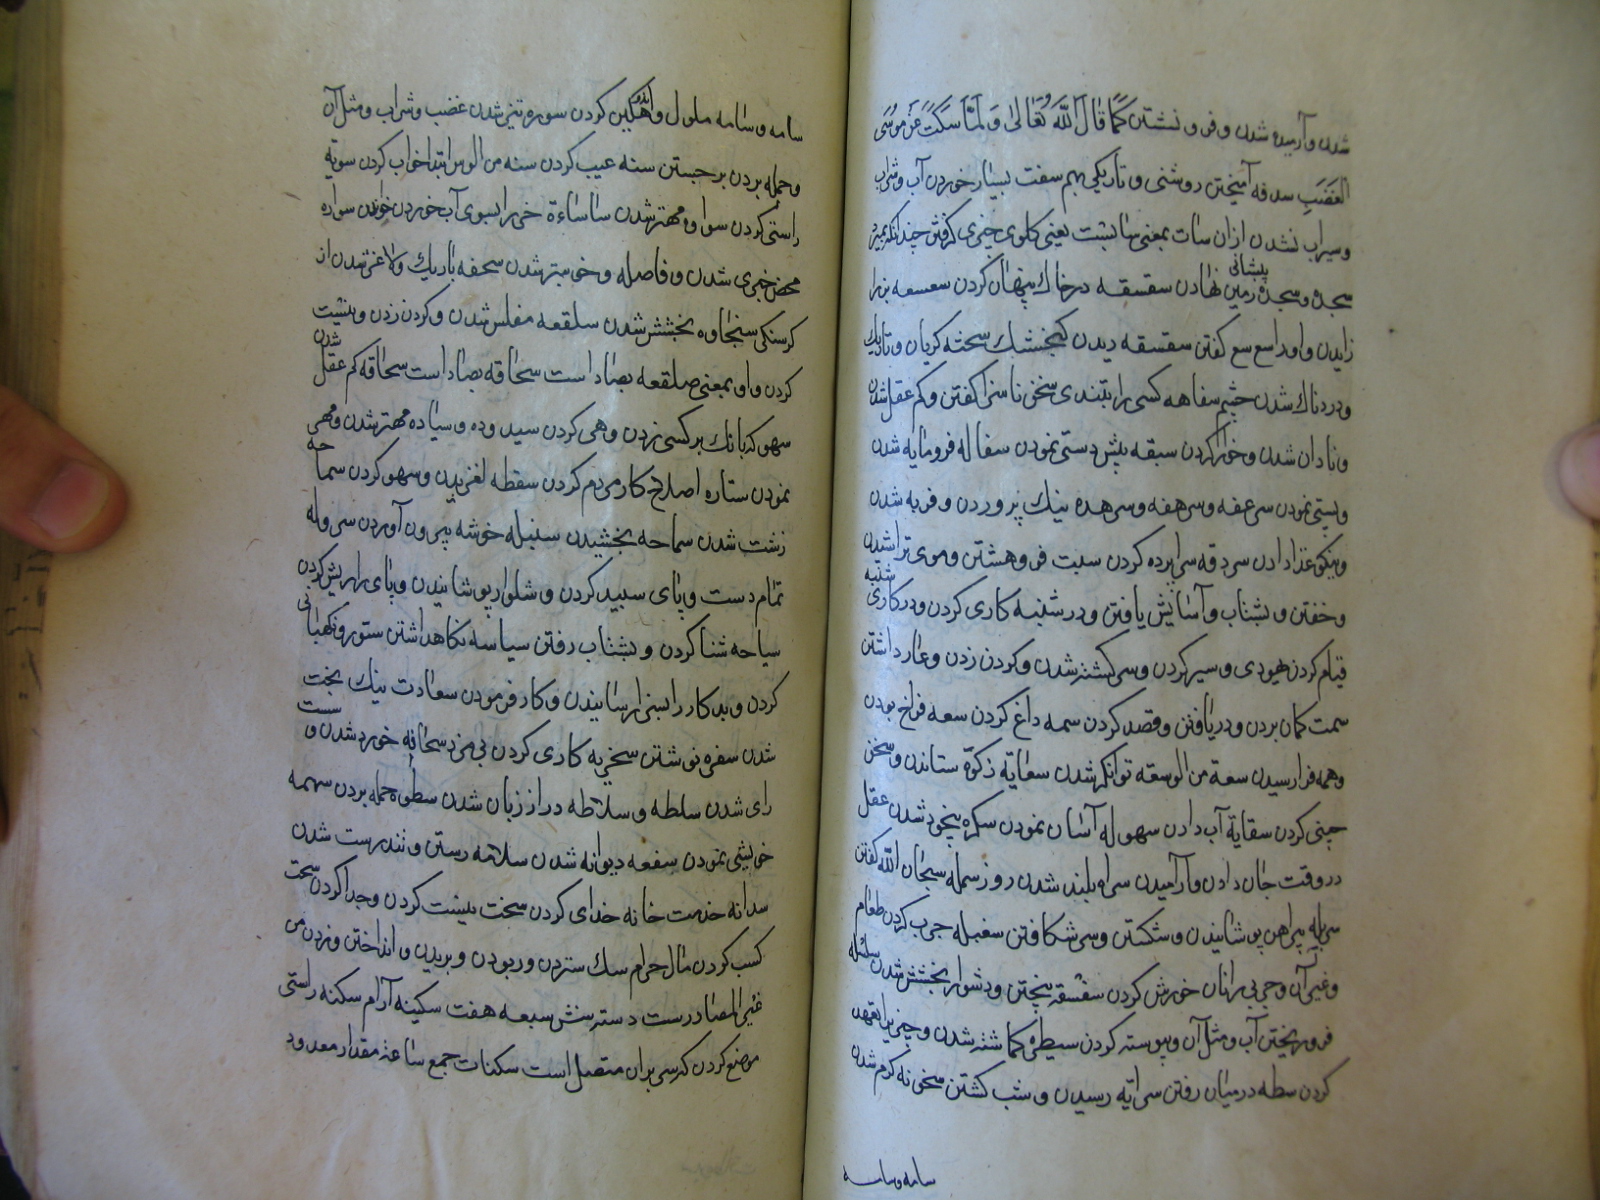 شدن و آرمیده شدن و فرو نشستن كَمَا قَالَ اللّٰهُ تَعَالیٰ وَلَمَّا سَكَتَ عَنْ مُوسَی
الْغَضَبُ سدفه آمیختن روشنی و تاریکی بهم سفت بسیار خوردن آب و شراب
و سیراب نشدن ازان سأت بمعنی سأبست یعنی کلوی چیزی کرفتن چندانکه بمیرد
سجده و سجده زمین پیشانی نهادن سقسقه درخاك پنهان کردن سعسعه بز را
زایدن و اورا سع سع کفتن سقسقه دیدن کنجشك سخته کریان و تاریك
و دردناك شدن چشم سفاهه کسی را بتندی سخن ناسزا کفتن و کم عقل شدن
و نادان شدن و خوار کردن سبقه پیش دستی نمودن سفاله فرومایه شدن
و پستی نمودن سرعفه و سرهفه و سرهده نیك پروردن و فربه شدن
و نیکو غذا دادن سردقه سراپرده کردن سبت فروهشتن و موی تراشیدن
و خفتن و بشتاب و آسایش یافتن و در شنبه کاری کردن و در کاری شنبه
قیام کردن یهودی و سیر کردن و سرکشته شدن و کردن زدن و عار داشتن
سمت کمان بردن و دریافتن و قصد کردن سمه داغ کردن سعه فراخ بودن
و همه فرارسیدن سعة من الوسعة توانکر شدن سعایة زکوة ستاندن و سخن
چینی کردن سقایة آب دادن سهوله آسان نمودن سکره بیخود شدن عقل
در وقت جان دادن و آرامیدن سراوه بلند شدن روز سمله سبحان الله کفتن
سربله پیراهن پوشانیدن و شکستن و سر شکافتن سغبله چرب کردن طعام
و غیر آن و چربی برنان خورش کردن سفسقه بیختن و دشوار بخشش شدن سلسله
فرو ریختن آب و مثل آن و پیوسته کردن سیطره کماشته شدن و چیزی را تعهد
کردن سطه درمیان رفتن سرایة رسیدن و شب کشتن سخونه کرم شدن
سامه وسامه
سامه و سامه ملول و اندوهکین کردن سوره تیز شدن غضب و شراب و مثل آن
و حمله بردن برجستن سنه عیب کردن سنه من الوسن ابتدا خواب کردن سویه
راستی کردن سواوه مهتر شدن سأسأة خر را بسوی آب خوردن خواندن سواره
محض خبری شدن و فاصله و خوبتر شدن سحفه باریك و لاغر شدن از
کرسنکی سنجاوه بخشش شدن سلقعه مفلس شدن و کردن زدن و نیست
کردن و او بمعنی صلقعه بصاد است سحاقه بصاد است سخافه کم عقل شدن
سهوکه بانك بر کسی زدن و هی کردن سیدوده و سیاده مهتر شدن و مهی
نمودن ستاره اصلاح کار مردم کردن سقطه لغزیدن و سهو کردن سماجه
زشت شدن سماحه بخشیدن سنبله خوشه بیرون آوردن سروله
تمام دست و پای سپید کردن و شلوار پوشانیدن و پای را ریش کردن
سیاحه شنا کردن و بشتاب رفتن سیاسه نکاهداشتن ستور و نکهبانی
کردن و بد کار را بسزا رسانیدن و کار فرمودن سعادت نیك بخت
شدن سفره نوشتن سخریه کاری کردن بی مزد سخافه خورد شدن و سست
رای شدن سلطه و سلاطه دراز زبان شدن سطوه حمله بردن سهمه
خویشی نمودن سفعه دیوانه شدن سلامه رستن و تندرست شدن
سدانه خدمت خانه خدای کردن سحت نیست کردن و جدا کردن سحت
کسب کردن مال حرام سك ستردن و ربودن و بریدن و انداختن و زدن من
غیر المصادر ست دسته سنش سبعه هفت سکینه آرام سکنه راستی
موضع کردن که سر بران متصل است سکنات جمع ساعة مقدار معدود